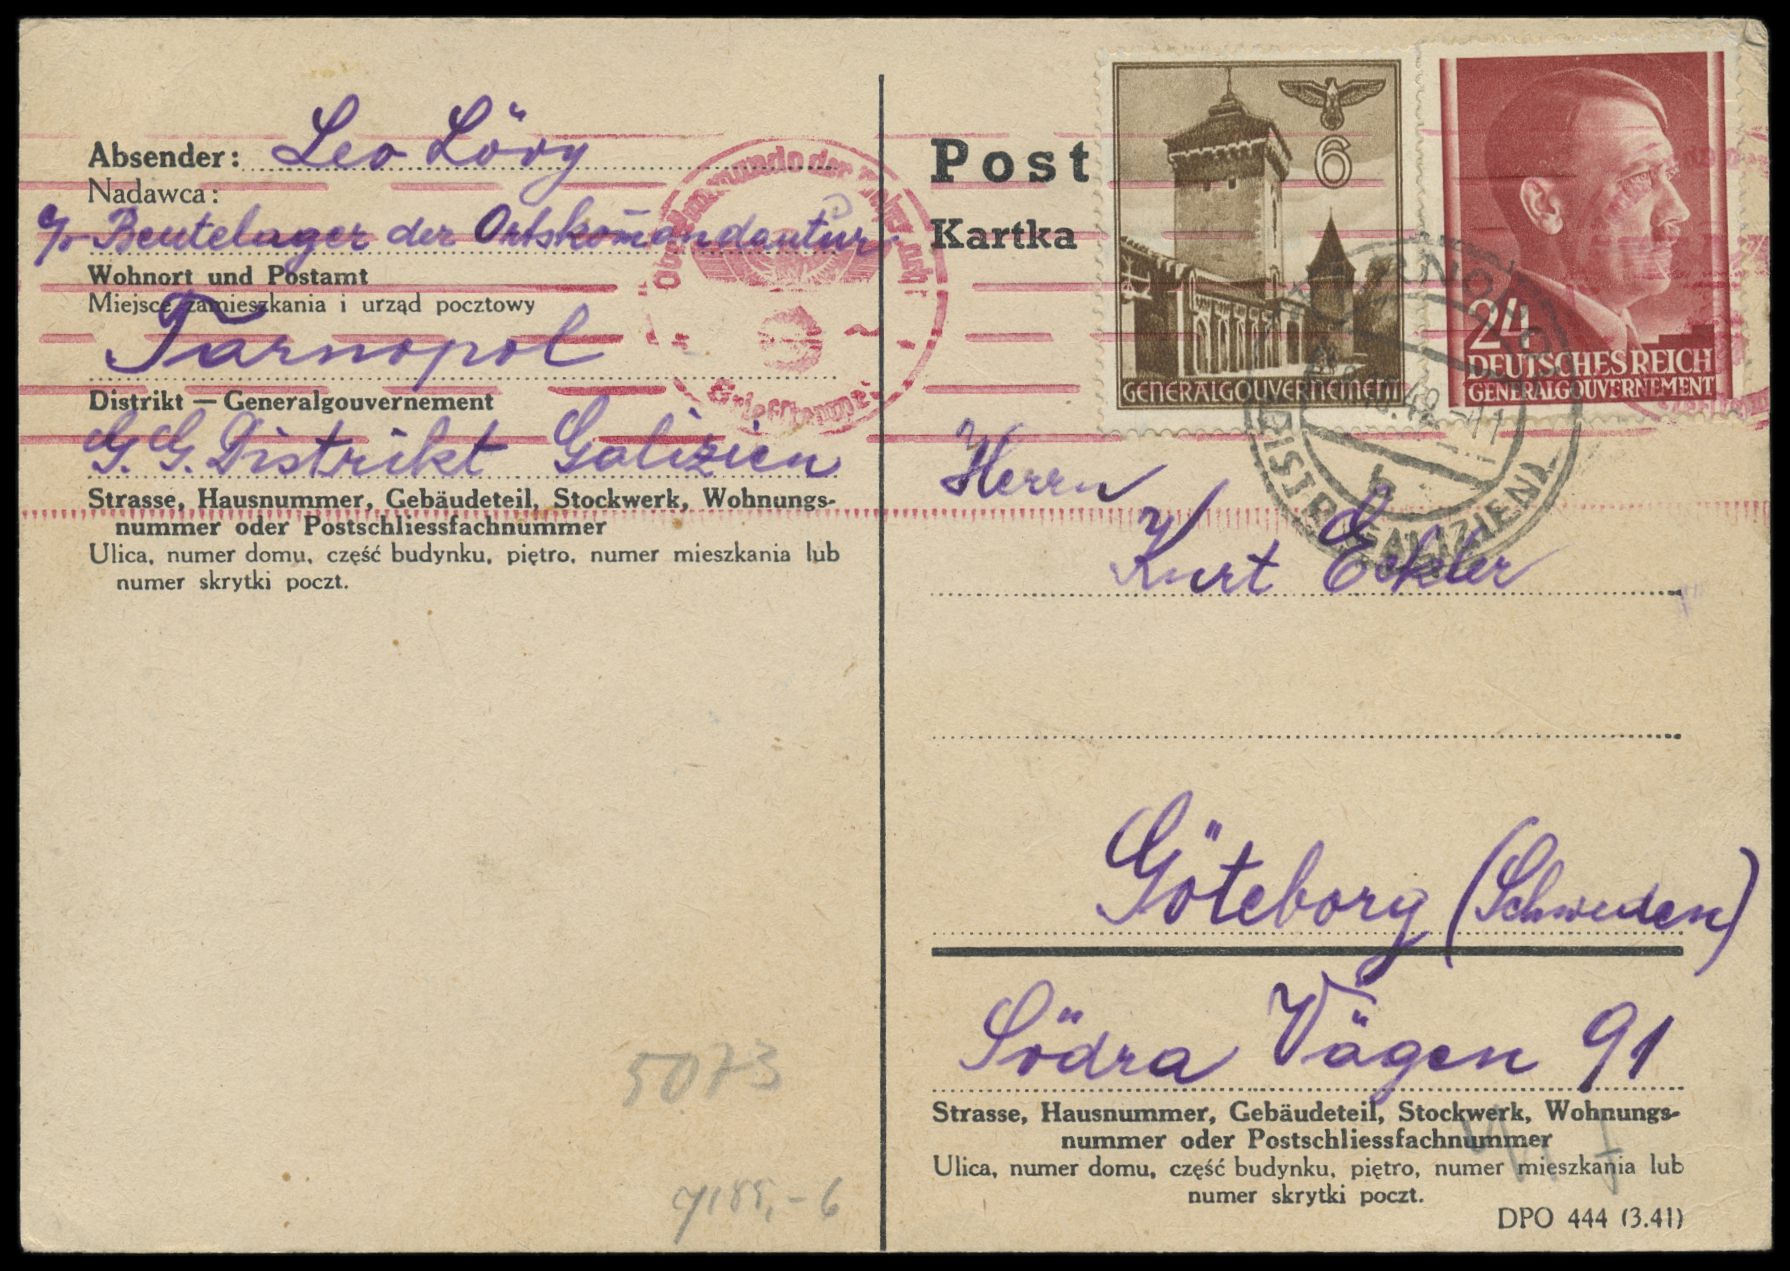 Absender: Leo Lövy
Nadawca:
c/o Beutelager der Ortskommandantur
Wohnort und Postamt
Miejsce zamieszkania i urząd pocztowy
Tarnopol
Distrikt — Generalgouvernement
G. G. Distrikt Galizien
Strasse, Hausnummer, Gebäudeteil, Stockwerk, Wohnungs-
nummer oder Postschliessfachnummer
Ulica, numer domu, część budynku, piętro, numer mieszkania lub
numer skrytki poczt.
5073
Post
Kartka
6
GENERALGOUVERNEMENT
24
DEUTSCHES REICH
GENERALGOUVERNEMENT
TARNOPOL
DISTR. GALIZIEN
b
Oberkommando der Wehrmacht
Briefstempel
Herrn
Kurt Eckler
Göteborg (Schweden)
Södra Vägen 91
Strasse, Hausnummer, Gebäudeteil, Stockwerk, Wohnungs-
nummer oder Postschliessfachnummer
Ulica, numer domu, część budynku, piętro, numer mieszkania lub
numer skrytki poczt.
DPO 444 (3.41)